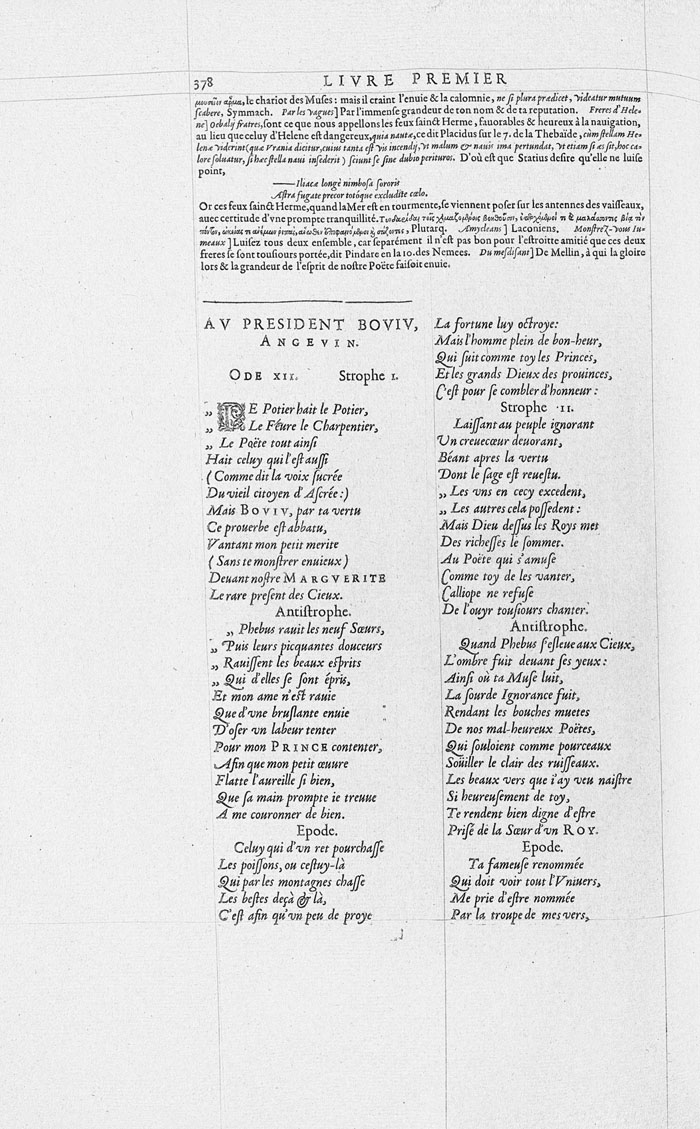 378 LIVRE PREMIER
le chariot des Muses : mais il craint l'enuie & la calomnie, ne si plura prædicet, videatur mutuum
scabere, Symmach. Par les vagues] Par l'immense grandeur de ton nom & de ta reputation. Freres d'Hele-
ne] Oebalij fratres, sont ce que nous appellons les feux sainct Herme, fauorables & heureux à la nauigation,
au lieu que celuy d'Helene est dangereux, quia nautæ, ce dit Placidus sur le 7. de la Thebaïde, cùm stellam He-
lenæ viderint (quæ Vrania dicitur, cuius tanta est vis incendij, vt malum & nauis ima pertundat, vt etiam si æs sit, hoc ca-
lore soluatur, si hæc stella naui insederit) sciunt se sine dubio perituros. D'où est que Statius desire qu'elle ne luise
point,
——Iliacæ longè nimbosa sororis
Astra fugate precor totóque excludite cælo.
Or ces feux sainct Herme, quand la Mer est en tourmente, se viennent poser sur les antennes des vaisseaux,
auec certitude d'vne prompte tranquillité.
Plutarq. Amycleans] Laconiens. Monstrez-vous Iu-
meaux] Luisez tous deux ensemble, car separément il n'est pas bon pour l'estroitte amitié que ces deux
freres se sont tousiours portée, dit Pindare en la 10. des Nemees. Du mesdisant] De Mellin, à qui la gloire
lors & la grandeur de l'esprit de nostre Poëte faisoit enuie.
AV PRESIDENT BOVIV,
ANGEVIN.
ODE XII. Strophe I.
„ LE Potier hait le Potier,
„ Le Féure le Charpentier,
„ Le Poëte tout ainsi
Hait celuy qui l'est aussi
(Comme dit la voix sucrée
Du vieil citoyen d'Ascrée :)
Mais BOVIV, par ta vertu
Ce prouerbe est abbatu,
Vantant mon petit merite
(Sans te monstrer enuieux)
Deuant nostre MARGVERITE
Le rare present des Cieux.
Antistrophe.
„ Phebus rauit les neuf Sœurs,
„ Puis leurs picquantes douceurs
„ Rauissent les beaux esprits
„ Qui d'elles se sont épris,
Et mon ame n'est rauie
Que d'vne bruslante enuie
D'oser vn labeur tenter
Pour mon PRINCE contenter,
Afin que mon petit œuure
Flatte l'aureille si bien,
Que sa main prompte ie treuue
A me couronner de bien.
Epode.
Celuy qui d'vn ret pourchasse
Les poissons, ou cestuy-là
Qui par les montagnes chasse
Les bestes deçà & là,
C'est afin qu'vn peu de proye
La fortune luy octroye :
Mais l'homme plein de bon-heur,
Qui suit comme toy les Princes,
Et les grands Dieux des prouinces,
C'est pour se combler d'honneur :
Strophe II.
Laissant au peuple ignorant
Vn creuecœur deuorant,
Béant apres la vertu
Dont le sage est reuestu.
„ Les vns en cecy excedent,
„ Les autres cela possedent :
Mais Dieu dessus les Roys met
Des richesses le sommet.
Au Poëte qui s'amuse
Comme toy de les vanter,
Calliope ne refuse
De l'ouyr tousiours chanter.
Antistrophe.
Quand Phebus s'esleue aux Cieux,
L'ombre fuit deuant ses yeux :
Ainsi où ta Muse luit,
La sourde Ignorance fuit,
Rendant les bouches muetes
De nos mal-heureux Poëtes,
Qui souloient comme pourceaux
Soüiller le clair des ruisseaux.
Les beaux vers que i'ay veu naistre
Si heureusement de toy,
Te rendent bien digne d'estre
Prisé de la Sœur d'vn ROY.
Epode.
Ta fameuse renommée
Qui doit voir tout l'Vniuers,
Me prie d'estre nommée
Par la troupe de mes vers,